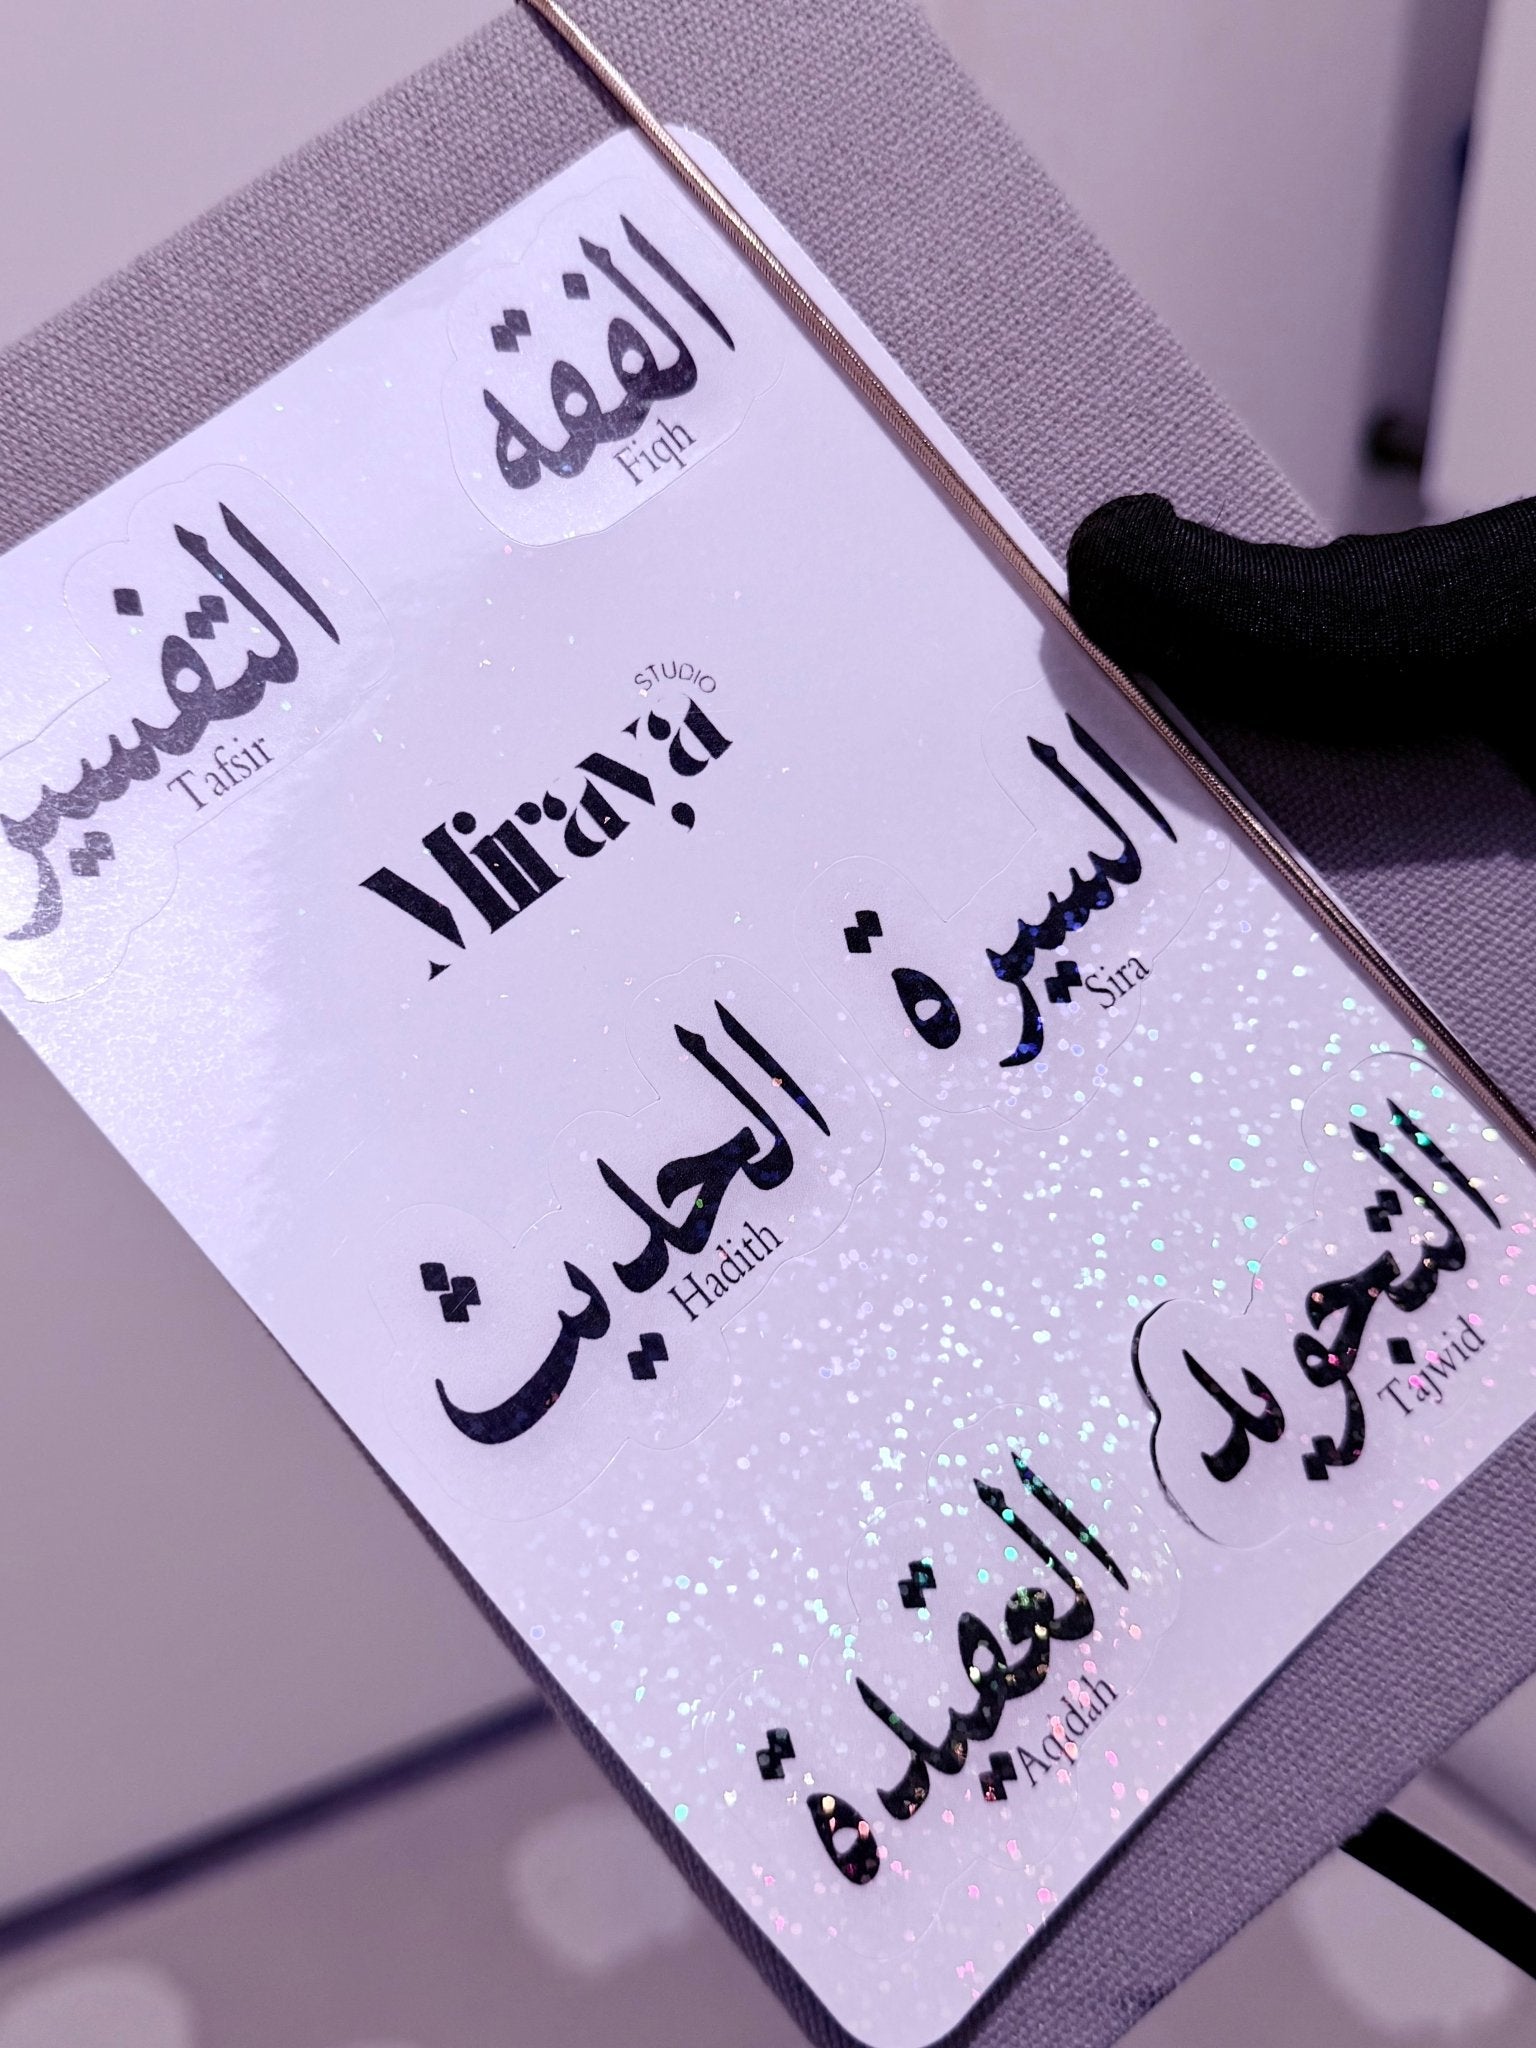 الفقه
Fiqh
التفسير
Tafsir
STUDIO
Miraya
السيرة
Sira
الحديث
Hadith
التجويد
Tajwid
العقيدة
Aqidah